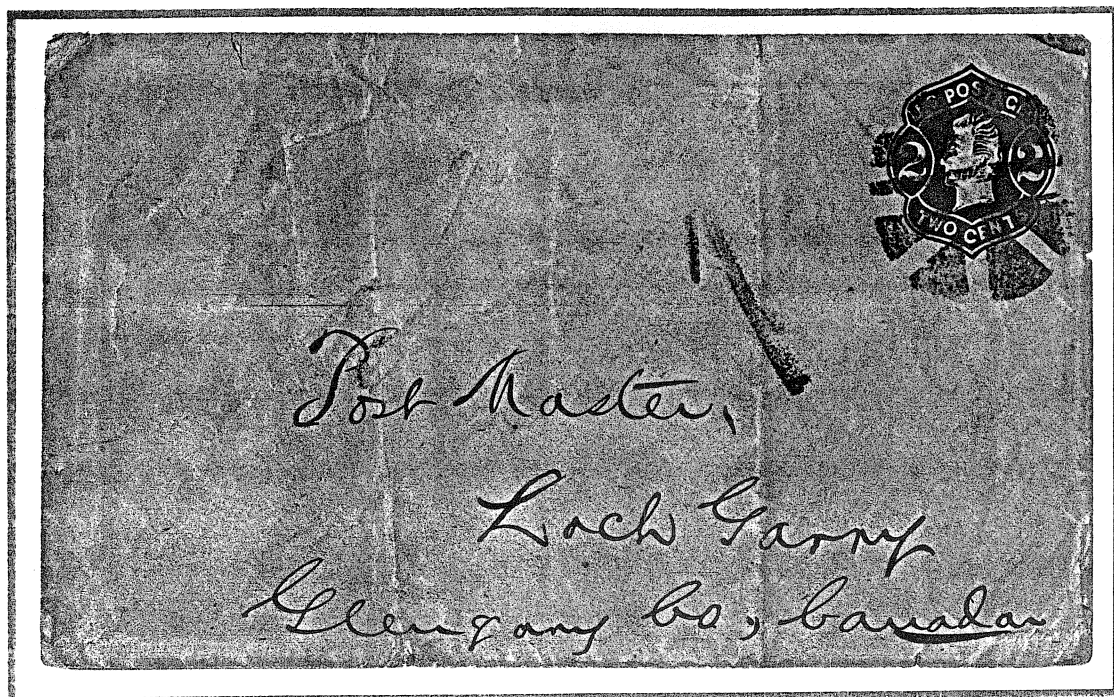 US POSTAGE
2 2
TWO CENTS
Post Master,
Loch Garry
Glengary Co, Canada